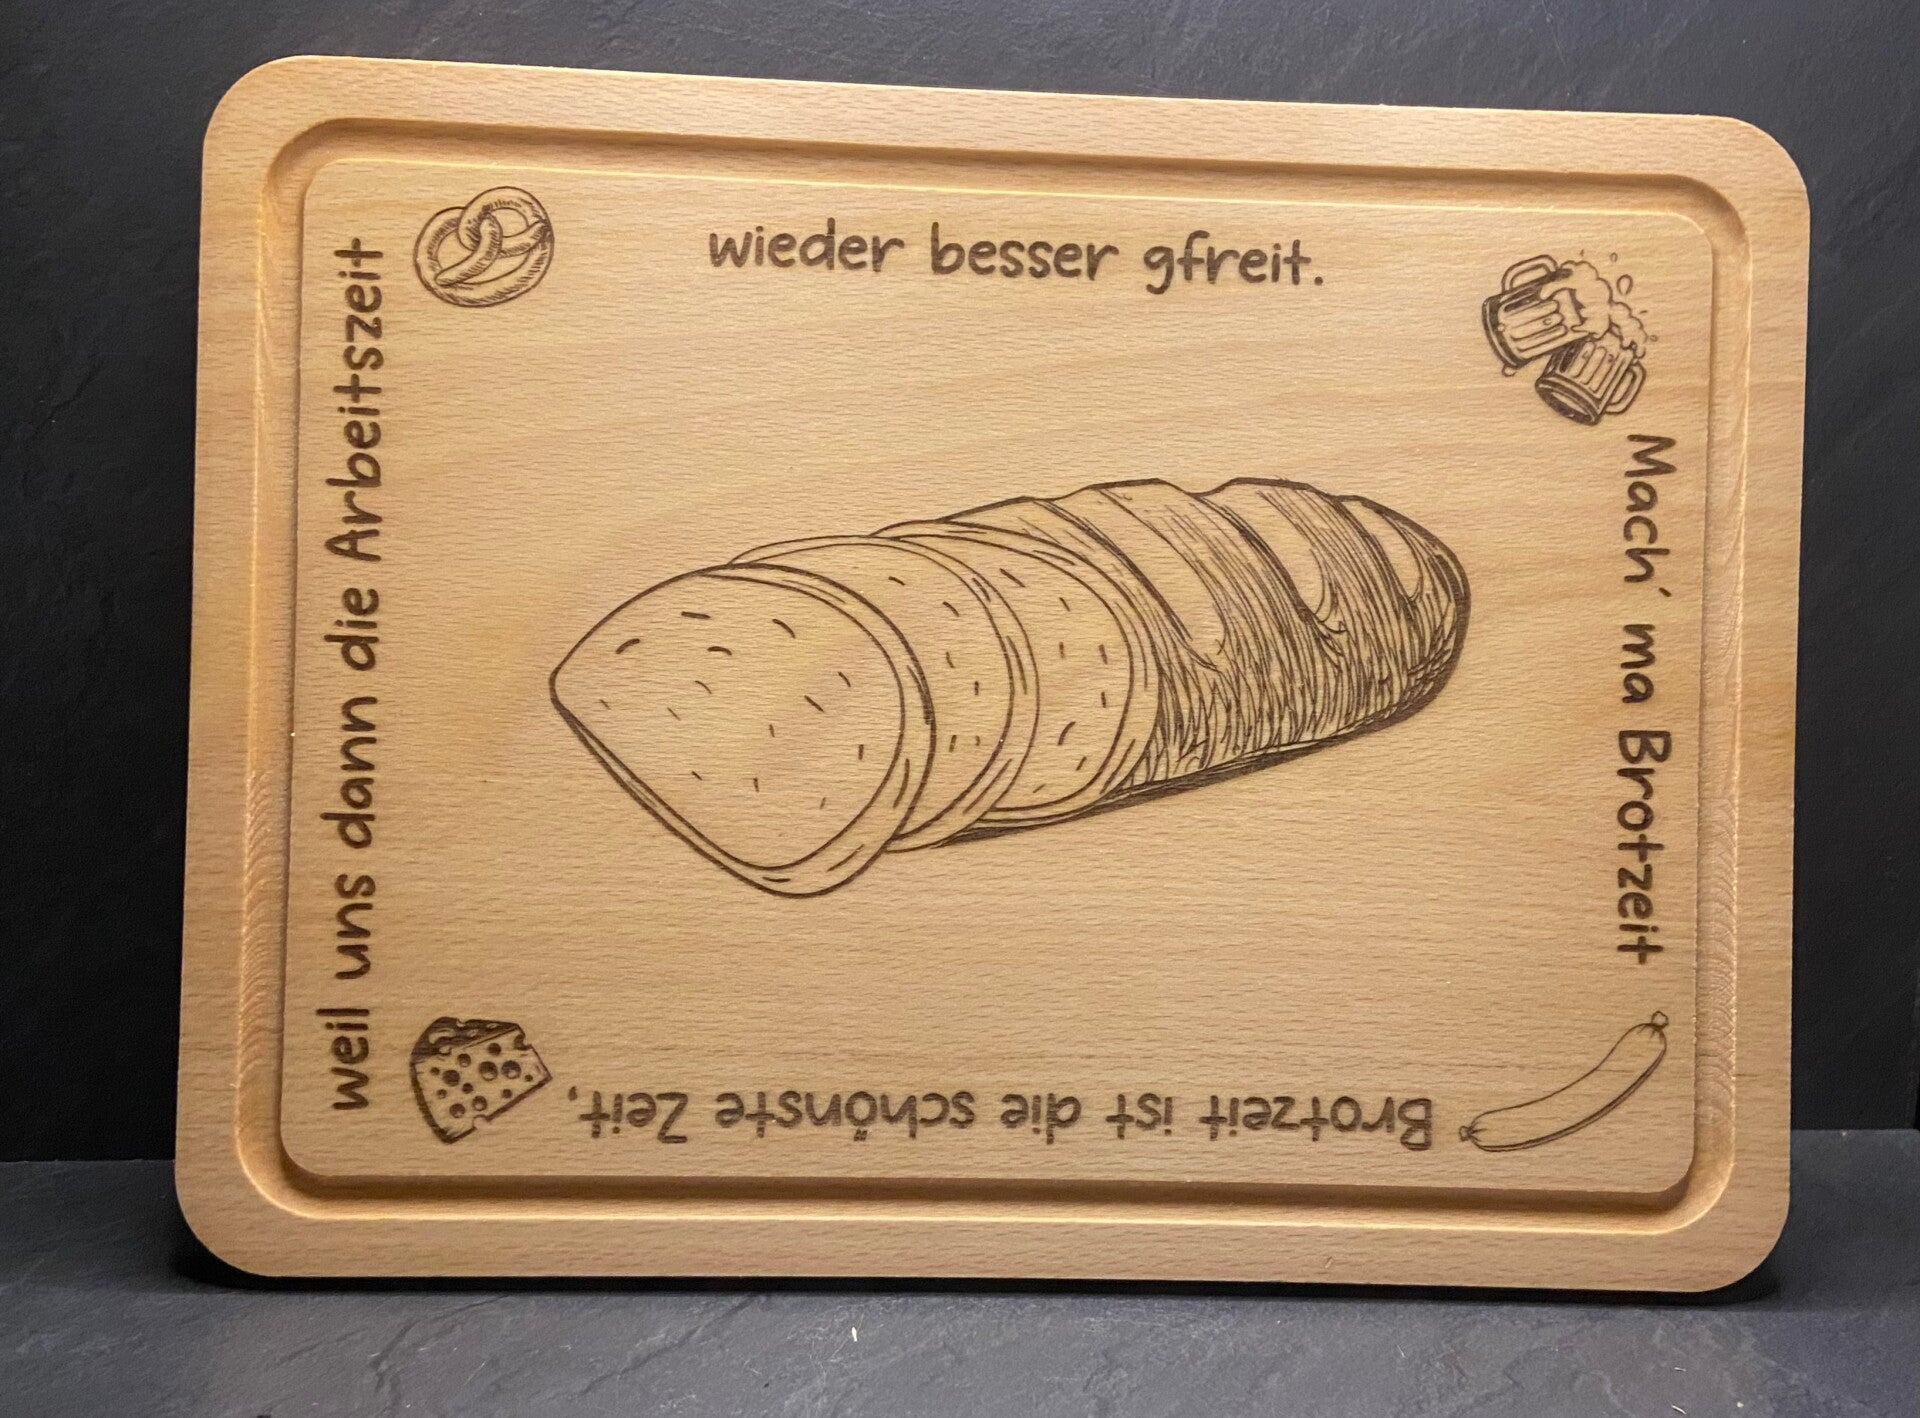 Mach´ ma Brotzeit
Brotzeit ist die schönste Zeit,
weil uns dann die Arbeitszeit
wieder besser gfreit.